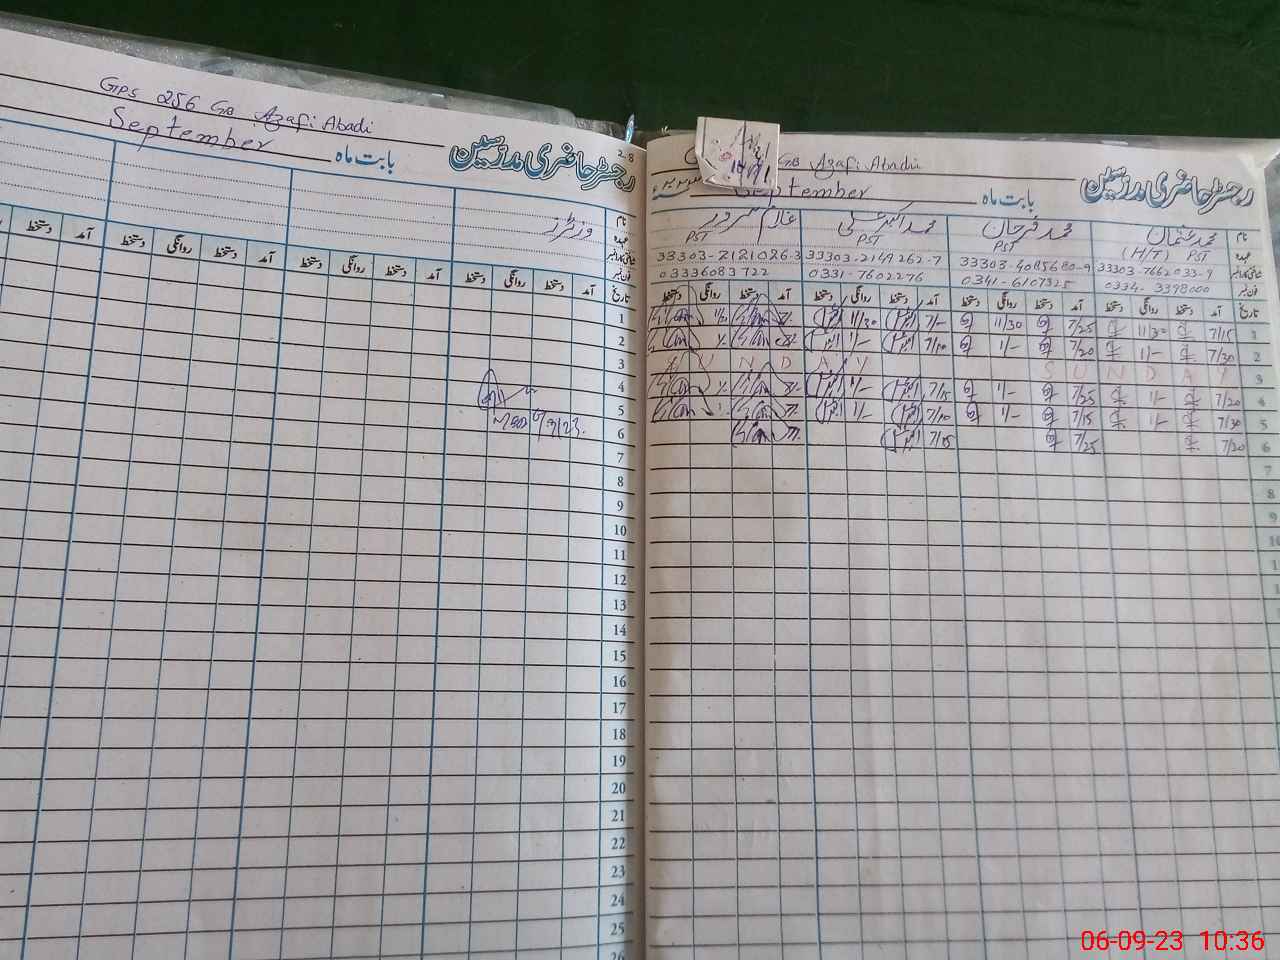 GPS 256 GB Azafi Abadi
September بابت ماہ
رجسٹر حاضری مدرسین
28
نام
عہدہ
شناختی کارڈ نمبر
فون نمبر
وزیٹرز
تاریخ آمد دستخط روانگی دستخط آمد دستخط روانگی دستخط آمد دستخط روانگی دستخط آمد دستخط
1
2
3
4
5
6
6/9/23
7
8
9
10
11
12
13
14
15
16
17
18
19
20
21
22
23
24
25
26
GB Azafi Abadi
September بابت ماہ
رجسٹر حاضری مدرسین
نام محمد عثمان محمد فرحان محمد اکبر علی غلام سرور
عہدہ PST (H/T) PST PST PST
شناختی کارڈ نمبر 33303-7662033-9 33303-4085680-9 33303-2149262-7 33303-2121026-3
فون نمبر 0334-3398000 0341-6107325 0331-7602276 03336083722
تاریخ آمد دستخط روانگی دستخط آمد دستخط روانگی دستخط آمد دستخط روانگی دستخط آمد دستخط روانگی دستخط
1 7/15 11/30 7/25 11/30 7/- 11/30
2 7/30 1/- 7/20 1/- 7/10 1/-
3 SUNDAY SUNDAY
4 7/20 1/- 7/25 1/- 7/15 1/-
5 7/30 1/- 7/15 1/- 7/10 1/-
6 7/20 7/25 7/15
7
8
9
10
06-09-23 10:36